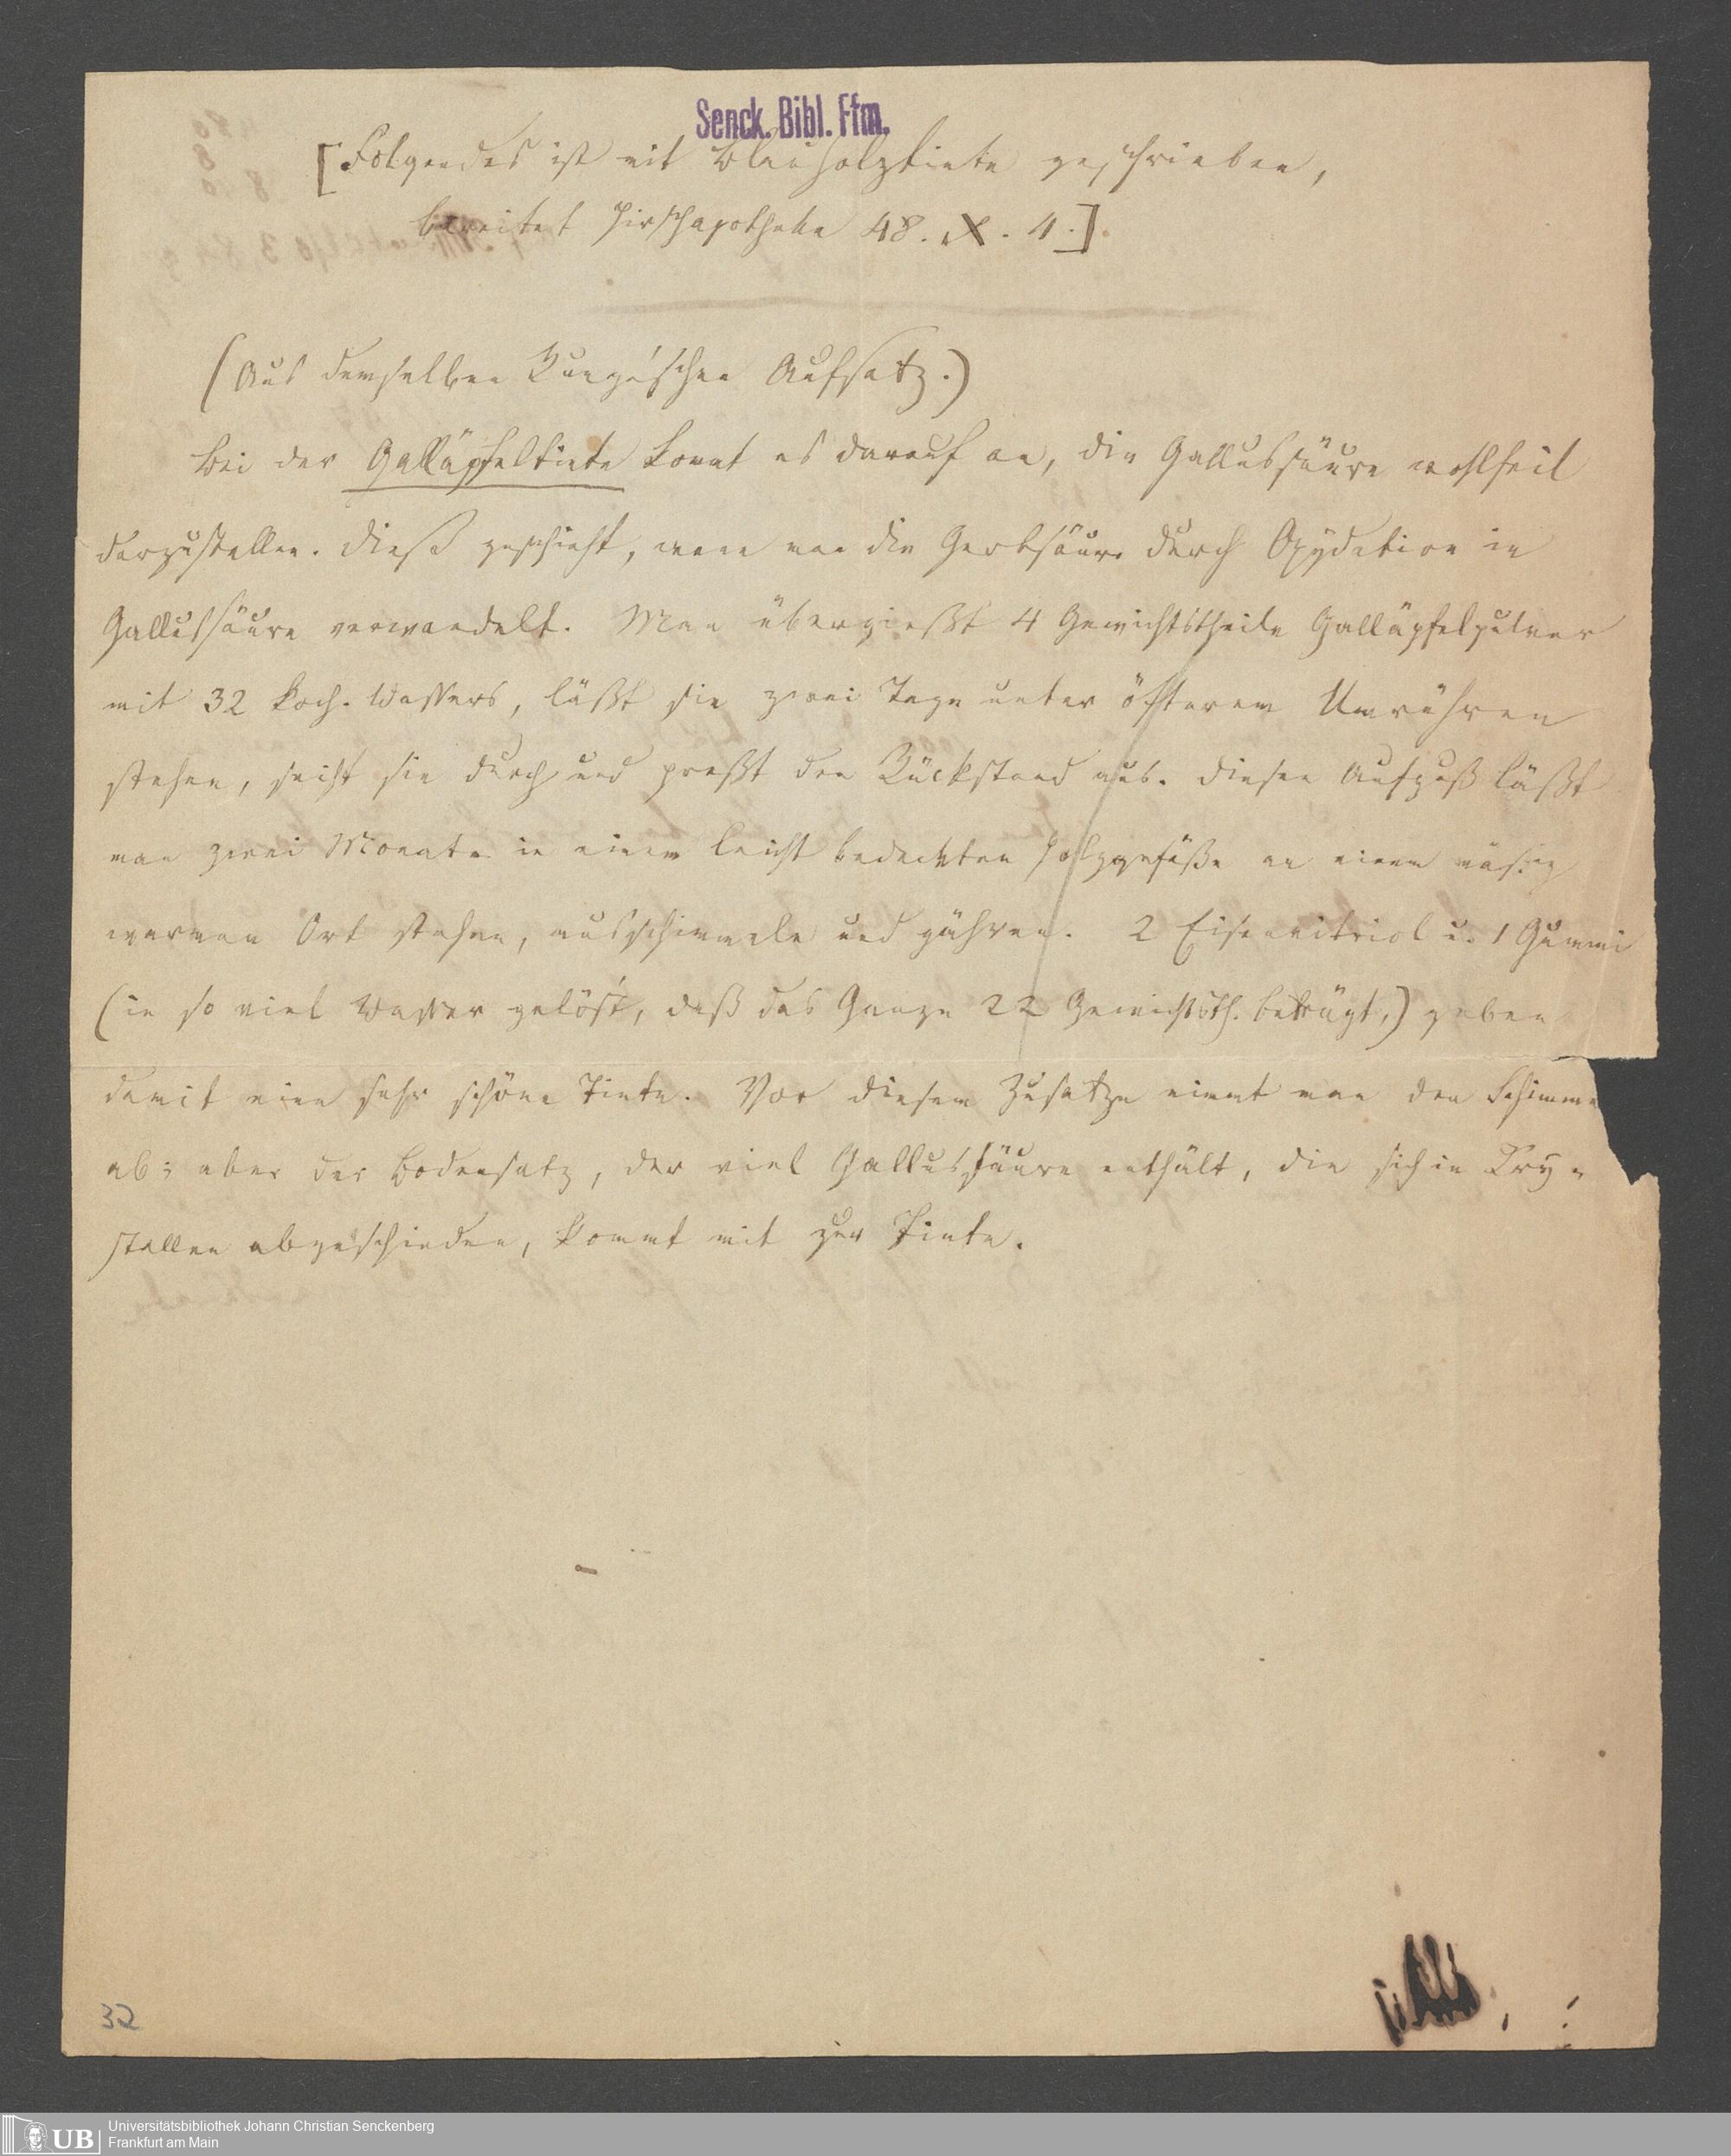 Senck. Bibl. Ffm.
[Folgendes ist mit Blauholztinte geschrieben,
bereitet Hirschapotheke 48. X. 1.]
(Aus demselben Rungi'schen Aufsatz.)
Bei der Galläpfeltinte kommt es darauf an, die Gallussäure wohlfeil
darzustellen. Dieß geschieht, wenn man die Gerbsäure durch Oxydation in
Gallussäure verwandelt. Man übergießt 4 Gewichtstheile Galläpfelpulver
mit 32 koch. Wassers, läßt sie zwei Tage unter öfterem Umrühren
stehen, seiht sie durch und preßt den Rückstand aus. Diesen Aufguß läßt
man zwei Monate in einem leicht bedeckten Holzgefäße an einem mäßig
warmen Ort stehen, ausschimmeln und gähren. 2 Eisenvitriol u. 1 Gummi
(in so viel Wasser gelöst, daß das Ganze 22 Gewichtsth. beträgt,) geben
damit eine sehr schöne Tinte. Vor diesem Zusatze nimmt man den Schimme
ab; aber der Bodensatz, der viel Gallussäure enthält, die sich in Kry-
stallen abgeschieden, kommt mit zur Tinte.
32
UB Universitätsbibliothek Johann Christian Senckenberg
Frankfurt am Main